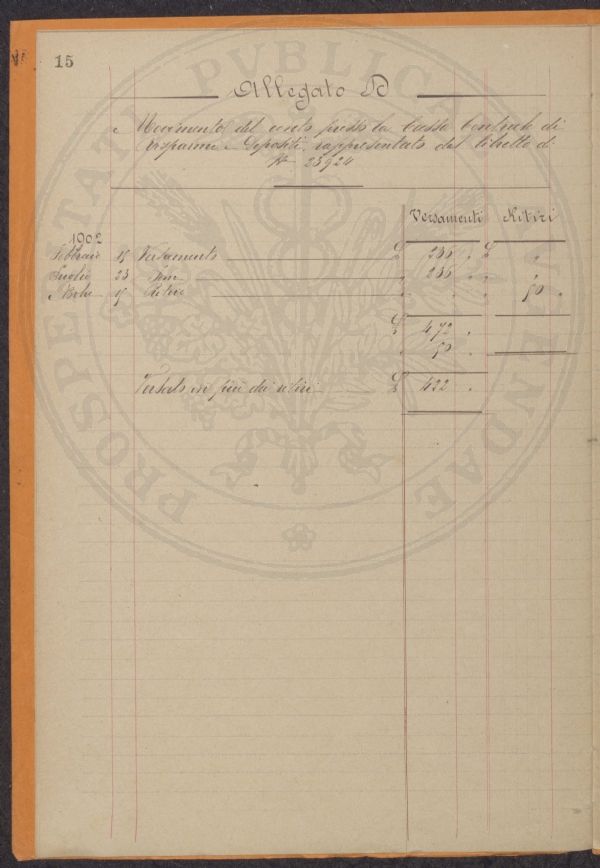 15
Allegato D
Movimento del conto presso la Cassa Centrale di
Risparmi e Depositi, rappresentato dal libretto di
N° 23924
Versamenti Ritiri
1902
Febbraio 15 Versamento £ 236 „ £ „
Luglio 23 Idem „ 236 „ „ „
8bre Ritiro „ „ „ „ 50 „
£ 472 „
„ 50 „
Versato in più dei ritiri £ 422 „
PROSPERITATI PVBLICAE AVGENDAE